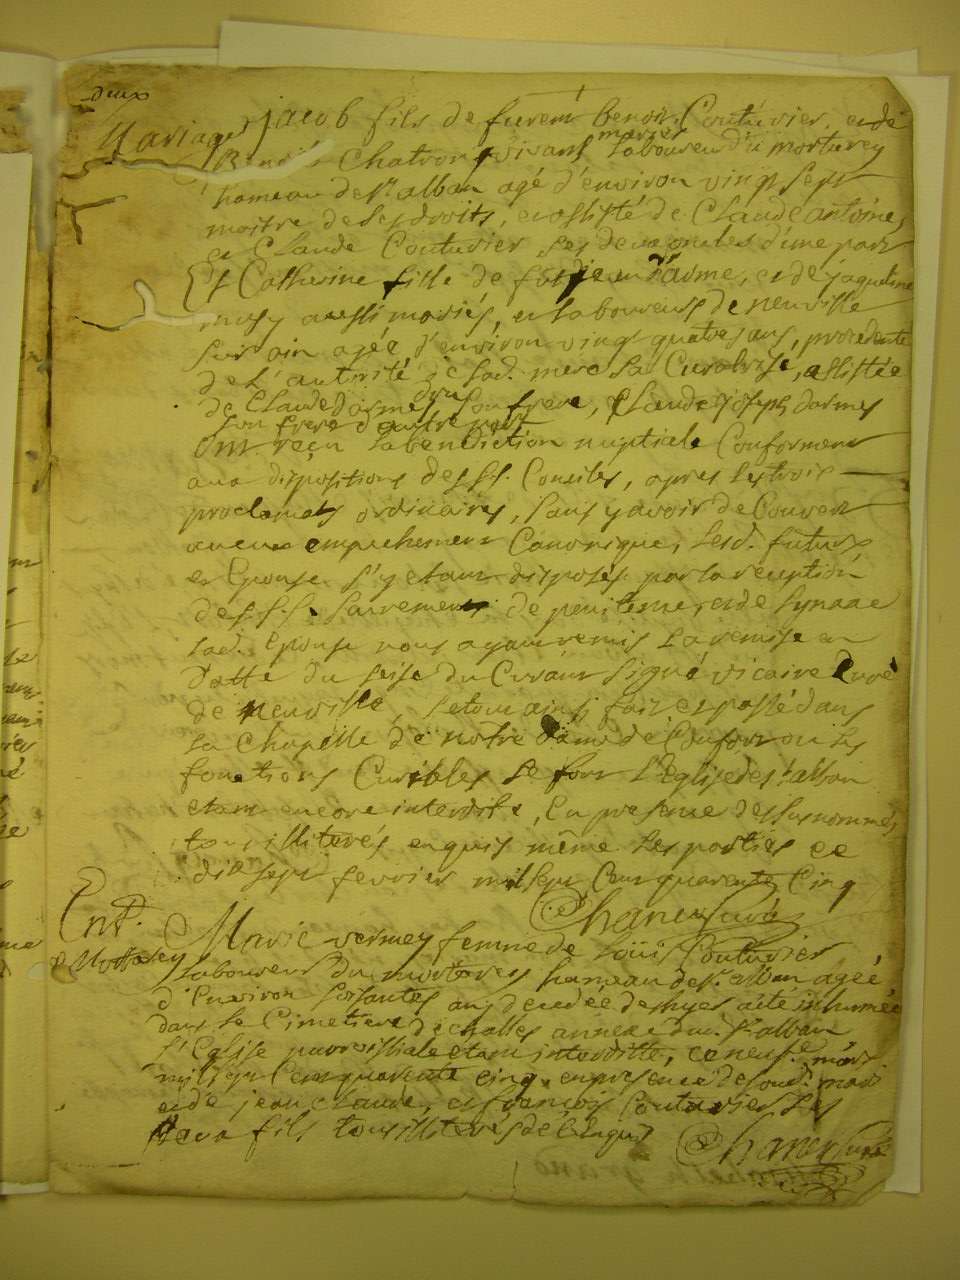 deux
Mariages
jacob fils de furent benoit Couturier, et de
Benoite Chatron vivants mariés laboureurs du morterey
hameau de St alban agé d'environ vingt sept
maitre de ses droits, et assisté de Claude antoine,
et Claude Couturier ses deux oncles d'une part
et Catherine fille de fut darme, et de jaqueline
musy aussi mariés, et laboureurs de neuville
sur ain agée d'environ vingt quatre ans, procedente
de L'autorité de lad. mere sa Curatrise, assistée
de Claude darmes son frere, Claude joseph darmes
son frere d'autre part
Ont reçu la benediction nuptiale Conformement
aux dispositions des SS. Conciles, apres les trois
proclamats ordinaires, sans y avoir decouvert
aucun empechement Canonique, lesd. futurs
et Epouse s'y etant disposés par la reception
des SS. sacrements de penitence et de
lad. Epouse nous ayant remis la remise en
datte du seise du Courant signé vicaire Curé
de neuville, le tout ainsi fait et passé dans
la Chapelle de notre dame de Confort ou les
fonctions Curiales se font L'Eglise de St alban
etant encore interdite, En presence des susnommés
tous illiterés enquis même les parties ce
dix sept fevrier mil sept Cent quarente Cinq
Ent.
Marie vermey femme de Loüis Couturier
laboureur du morterey hameau de St alban agée
d'Environ soisantes ans decedée d'hyer a été inhumée
dans le Cimetiere de challes annexe dud. St alban
L'Eglise parroissiale etant interditte, ce neuf mars
mil sept Cent quarente cinq en presence de sond. mari
et de jean claude, et françois Couturier ses
deux fils tous illiterés de ce enquis